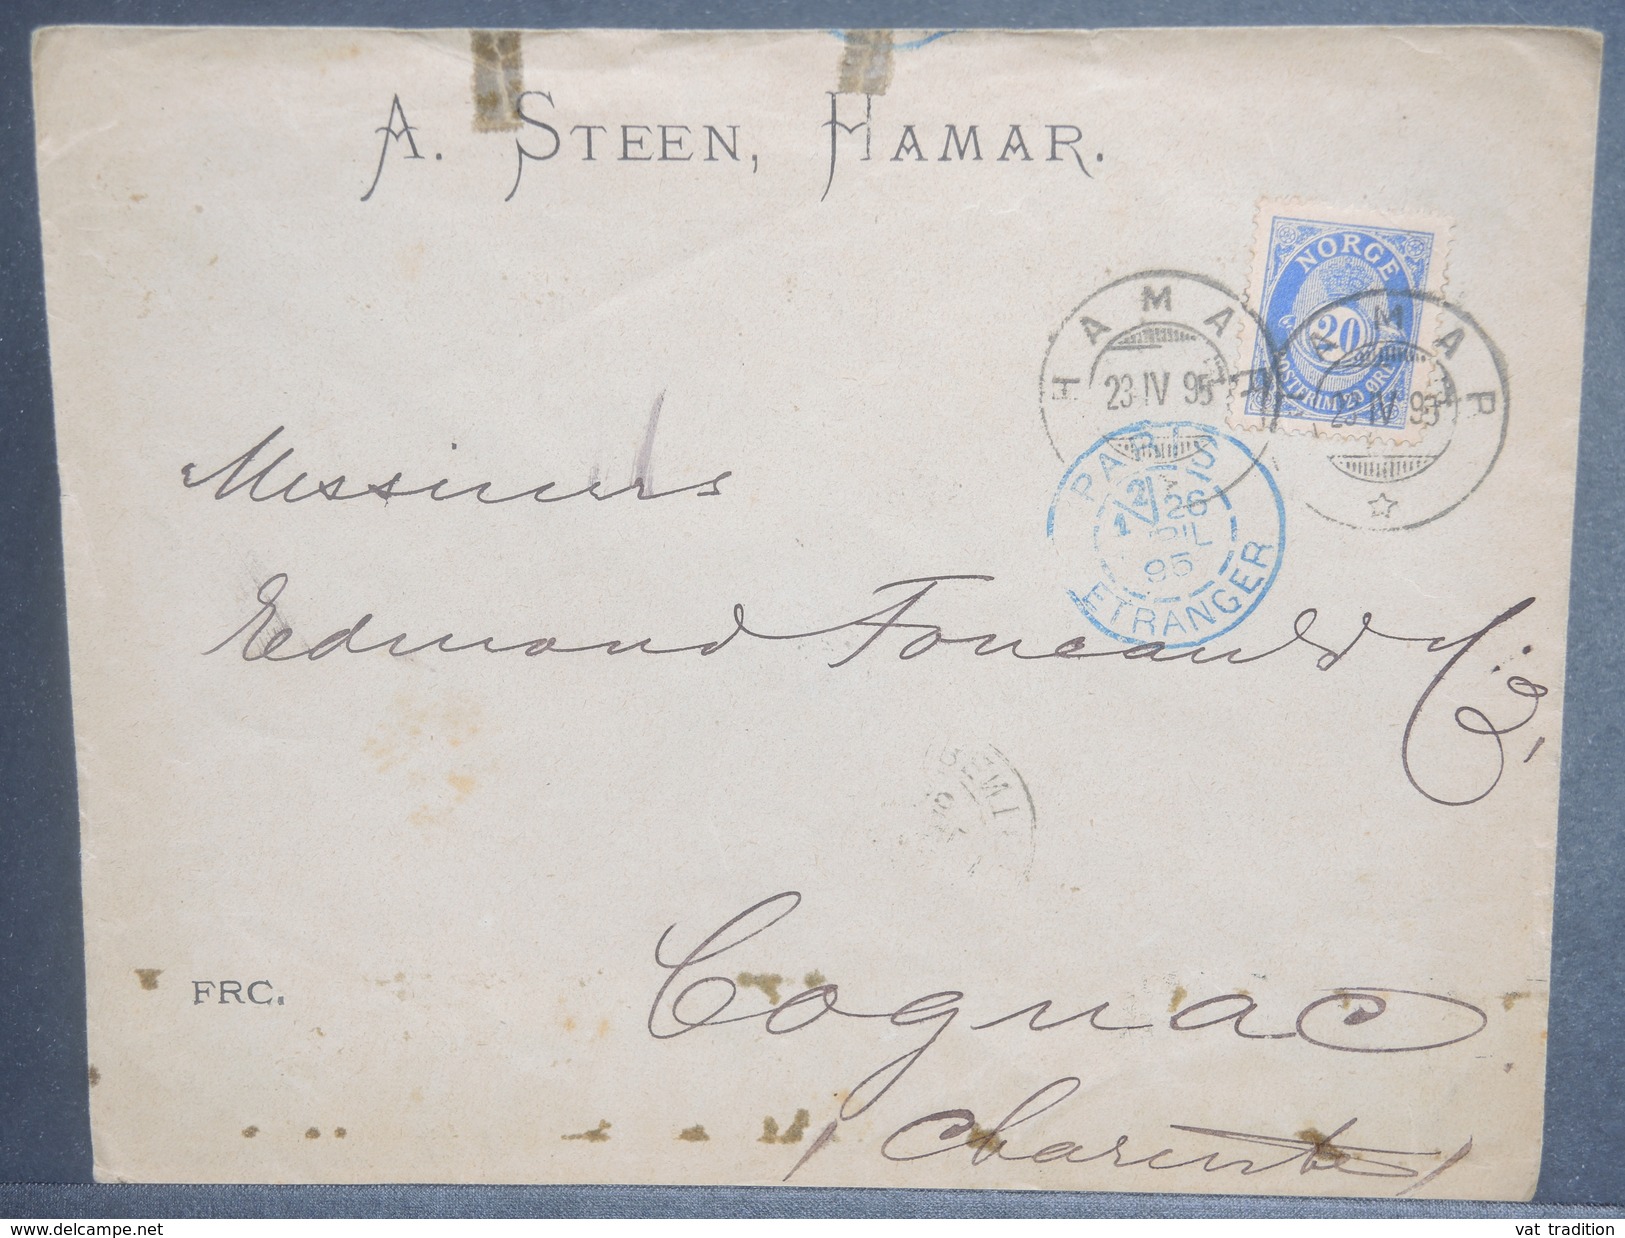 A. STEEN, HAMAR.
NORGE
20
POSTFRIM 20 ØRE
HAMAR
23 IV 95
HAMAR
23 IV 95
PARIS
26
95
ETRANGER
Messieurs
Edmond Foucauld & Cie,
FRC.
Cognac
(Charente)
© delcampe.net
vat tradition